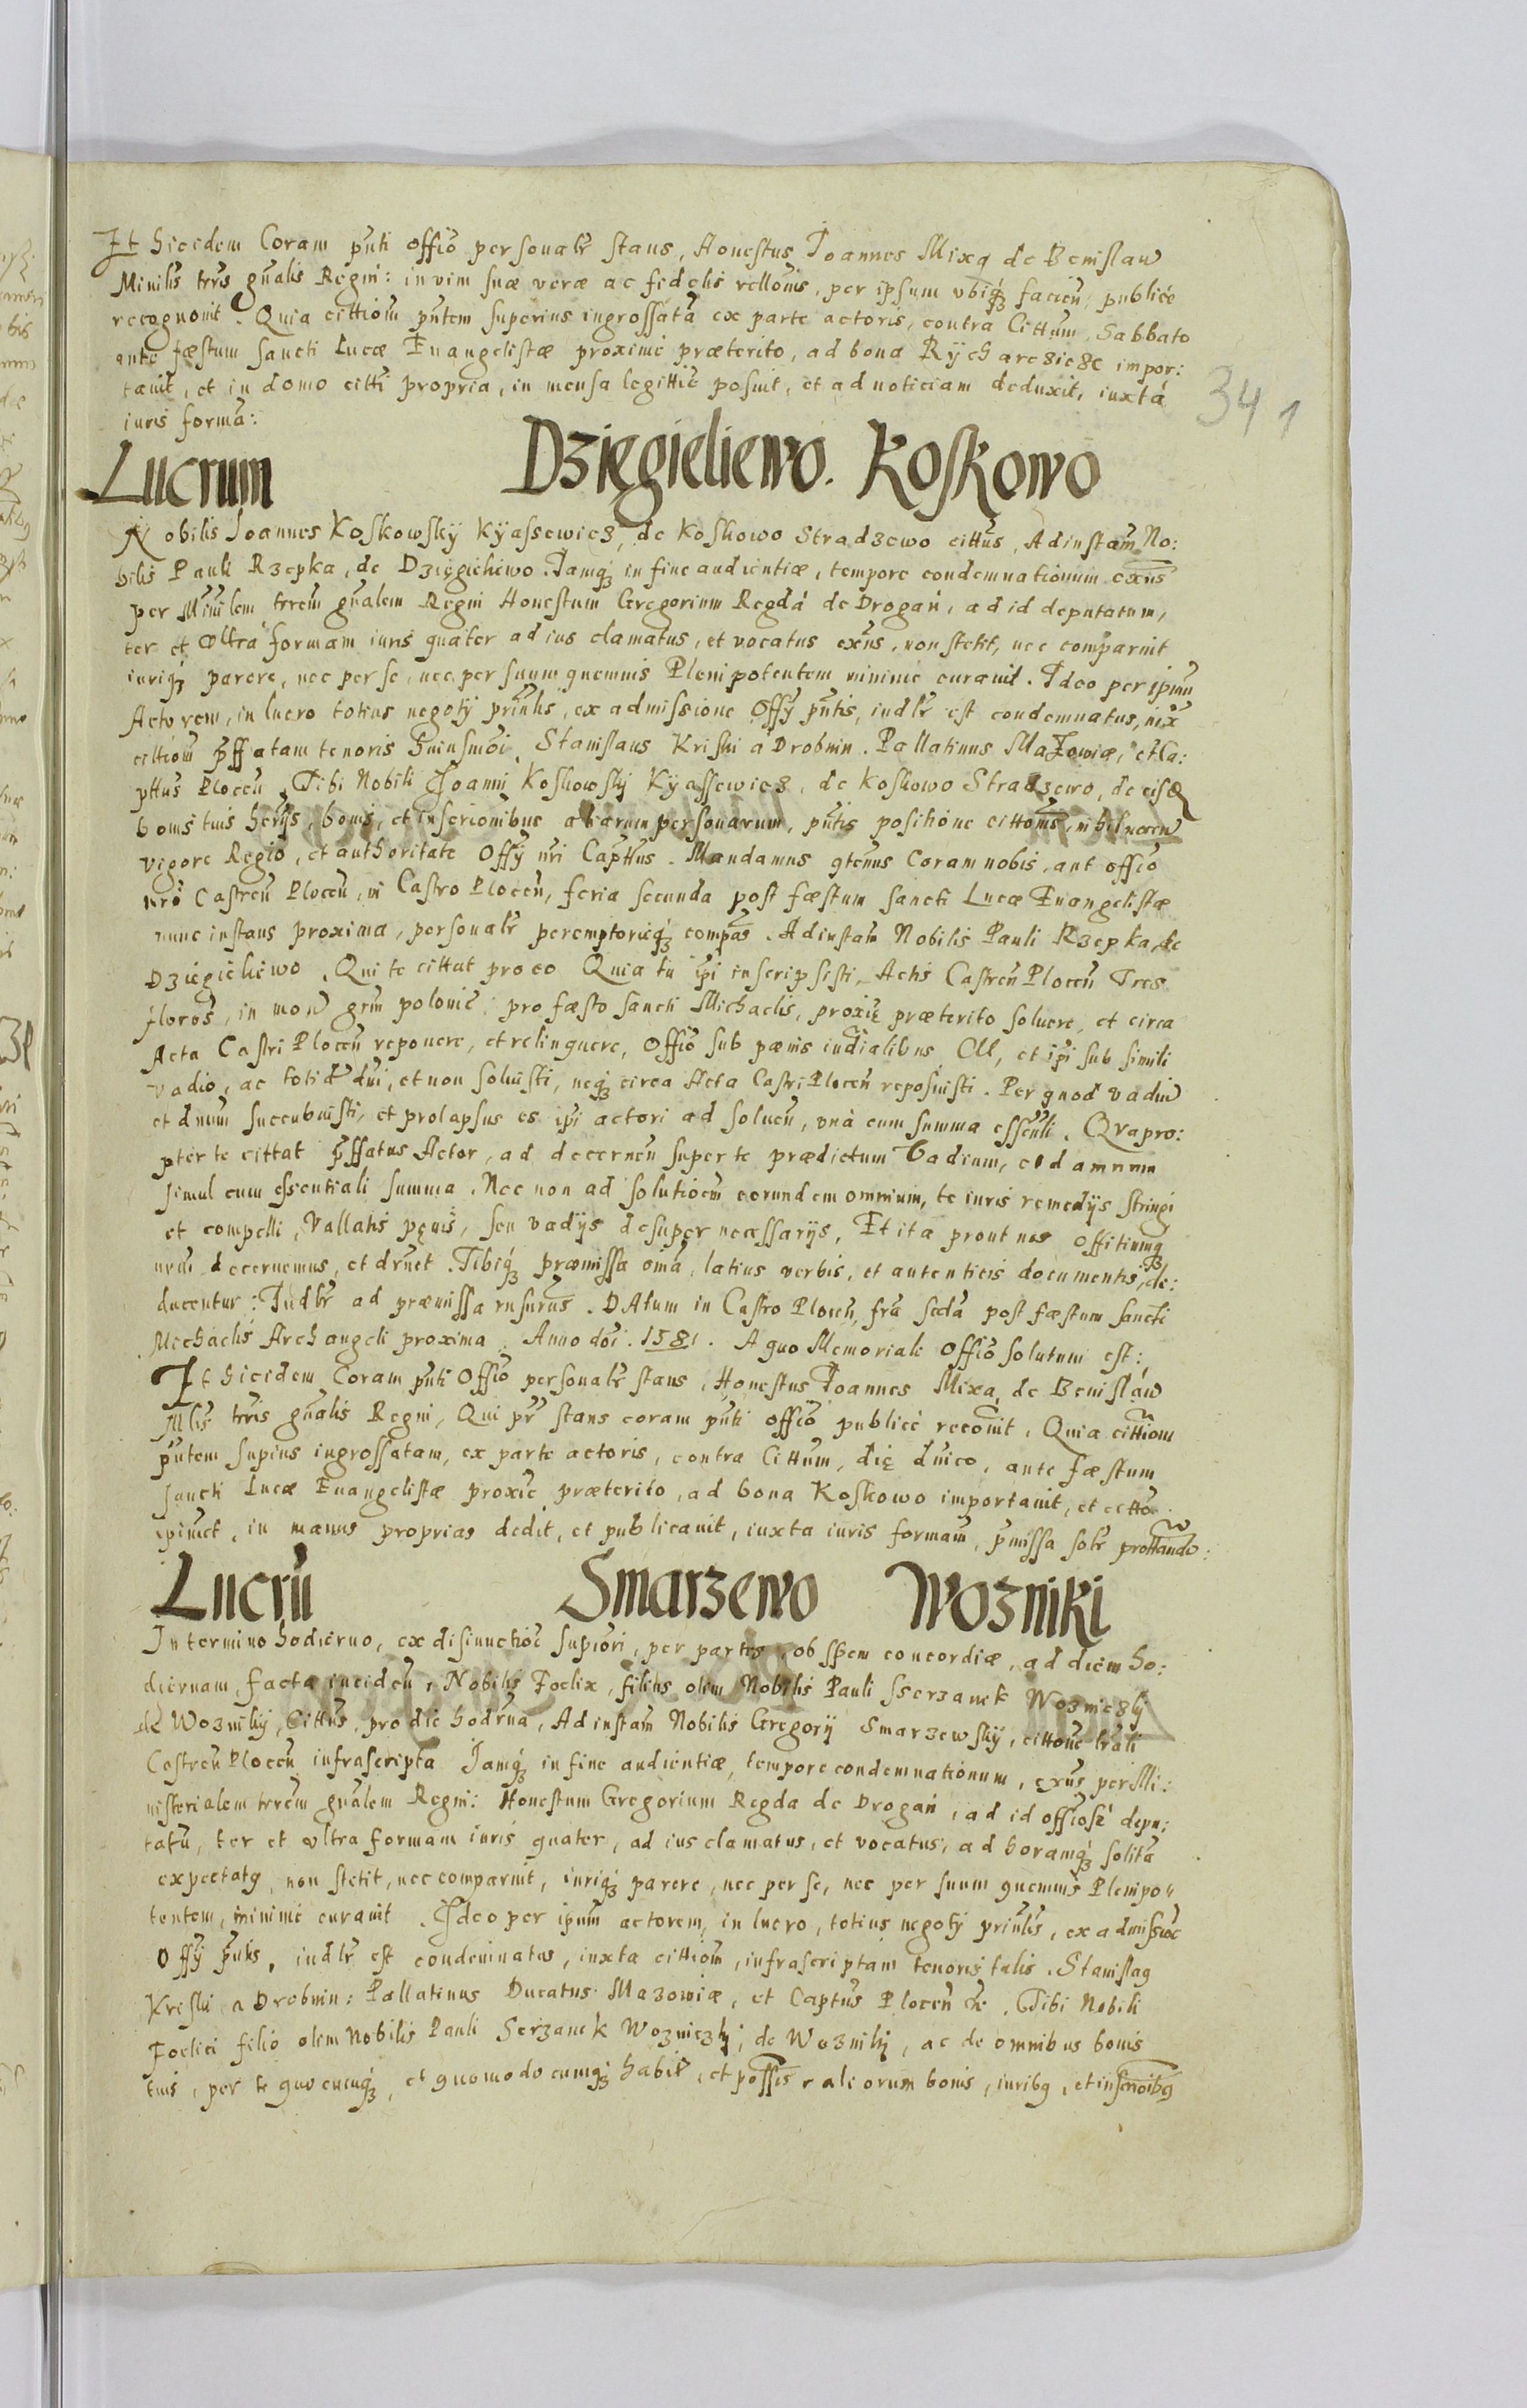 Et hicidem Coram pñti offiō personalr̃ stans, Honestus Joannes Mixa de Benisław
Minilis trr̃is gñalis Regni: in vim suæ veræ ac fidelis rellōnis, per ipsum vbiq₃ facien̄, publicè
recognouit. Quia cittiōm pñtem superius ingrossatã ex parte actoris, contra Cittum, Sabbato
ante fæstum sancti Lucæ Euangelistæ proximè præterito, ad bona Rÿcharczicze impor:
tauit, et in domo citti propria, in mensa legittiē posuit, et ad noticiam deduxit, iuxtá
iuris formã:
341
Lucrum Dzięgieliewo. Koskowo
Nobilis Joannes Koskowskÿ Kÿassewicz, de Koskowo Stradzewo cittus, Ad instam̃ No:
bilis Pauli Rzepka, de Dzięgieliewo. Iamq₃ in fine audientiæ, tempore condemnationum exñs
per Minilem trrem̃ gñalem Regni Honestum Gregorium Regdá de Drogań, ad id deputatum,
ter et vltra formam iuris quater ad ius clamatus, et vocatus exñs, non stetit, nec comparuit
iuriq₃ parere, nec per se, nec per suum quemuis Plenipotentem minime curauit. Ideo per ipm̃
Actorem, in lucro totius negotÿ prinĩlis, ex admissione Offÿ pñtis, iudlr̃ est condemnatus, iux̃
cittiōm p̃ffatam tenoris huiusmōi. Stanislaus Kriski á Drobnin. Pallatinus Mazowiæ, et Ca:
pttus Plocen̄. Tibi Nobili Joanni Koskowskÿ Kÿassewicz, de Koskowo Stradzewo, de eisd̃
bonis tuis herÿs, bonis, et inscrionibus aliarum personarum, pñtis positione cittōnis, nihil nocen̄
vigore Regio, et authoritate Offÿ nr̃i Capttus. Mandamus qtenus Coram nobis, aut offiō
nrō Castren̄ Plocen̄, in Castro Plocen̄, feria secunda post fæstum sancti Lucæ Euangelistæ
nunc instans proxima, personalr̃ peremptorieq₃ compas̃. Ad instam̃ Nobilis Pauli Rzepka, de
Dzięgieliewo. Qui te cittat pro eo Quia tu ip̃i inscripsisti, Actis Castren̄ Plocen̄ Tres
florōs, in mon̄ grm̃ polonic̃, pro fæsto sancti Michaelis, proxiē præterito soluere, et circa
Acta Castri Plocen̄ reponere, et relinquere, Offiō sub pænis iudialibus CM, et ip̃i sub simili
vadio, ac totid̃ dn̄i, et non soluisti, neq₃ circa Acta Castri Plocen̄ reposuisti. Per quod vadiũ
et dnum succubuisti, et prolapsus es ip̃i actori ad soluen̄, vnà cum summa essenli. Qvapro:
pter te cittat p̃ffatus Actor, ad decernen̄ super te prædictum Vadium, et damnum
simul cum essentiali summa. Nec non ad solutiōm eorundem omnium, te iuris remedÿs stringi
et compelli, Vallatis pęnis, seu vadÿs desuper necessarÿs, Et ita prout nos offitiumq₃
nrũ decernemus, et dr̃net. Tibiq₃ præmissa oīa, latius verbis, et autenticis documentis, de:
ducentur: Iudlr̃ ad præmissa rnsurus. DAtum in Castro Plocen̄, frã sc̃da post fæstum sancti
Michaelis Archangeli proxima. Anno dōi. 1581. A quo Memoriali offiō solutum est:
Et hicidem Coram pñti Offiō personalr̃ stans, Honestus Joannes Mixa de Benisław
Mlis trr̃is gñalis Regni, Qui pr̃ stans coram pñti offiō publicè recouit, Quia cittiōm
pñtem supius ingrossatam, ex parte actoris, contra Cittum, dię dnico, ante fæstum
sancti Lucæ Euangelistæ proxiē præterito, ad bona Koskowo importauit, et cittō
ipimet, in manus proprias dedit, et publicauit, iuxta iuris formam, p̃missa solr̃ prottando:
Lucrũ Smarzewo Wozniki
In termino hodierno, ex disiunctiōe supiori, per partes, ob spem concordiæ, ad diem ho:
diernam, facta inciden̄, Nobilis Foelix, filius olim Nobilis Pauli Sserzanek Woznieczkÿ
de Woznikÿ, Cittus, pro die hodr̃na, Ad instam̃ Nobilis Gregorÿ Smarzewskÿ, cittōne trali
Castren̄ Plocen̄ infrascripta Iamq₃ in fine audientiæ, tempore condemnationum, exñs per Mi:
nisterialem trrem̃ gñalem Regni: Honestum Gregorium Regda de Drogań, ad id offiosè depu:
tatũ, ter et vltra formam iuris quater, ad ius clamatus, et vocatus, ad horamq₃ solitã
expectatq, non stetit, nec comparuit, iuriq₃ parere, nec per se, nec per suum quemuis Plenipo"
tentem, minimè curauit. Ideo per ipum actorem, in lucro, totius negotÿ prinlis, ex admissiōe
Offÿ pñtis, iudlr̃ est condemnatus, iuxta cittiōm, infrascriptam tenoris talis. Stanislaq
Kriski a Drobnin: Pallatinus Ducatus Mazowiæ, et Captus Plocen̄ &c. Tibi Nobili
Foelici filio olim Nobilis Pauli Serzanek Woznieczkÿ, de Woznikÿ, ac de omnibus bonis
tuis, per te quocunq₃, et quomodocunq₃ habit̃, et possis, aliorum bonis, iuribq, et inscrioibq